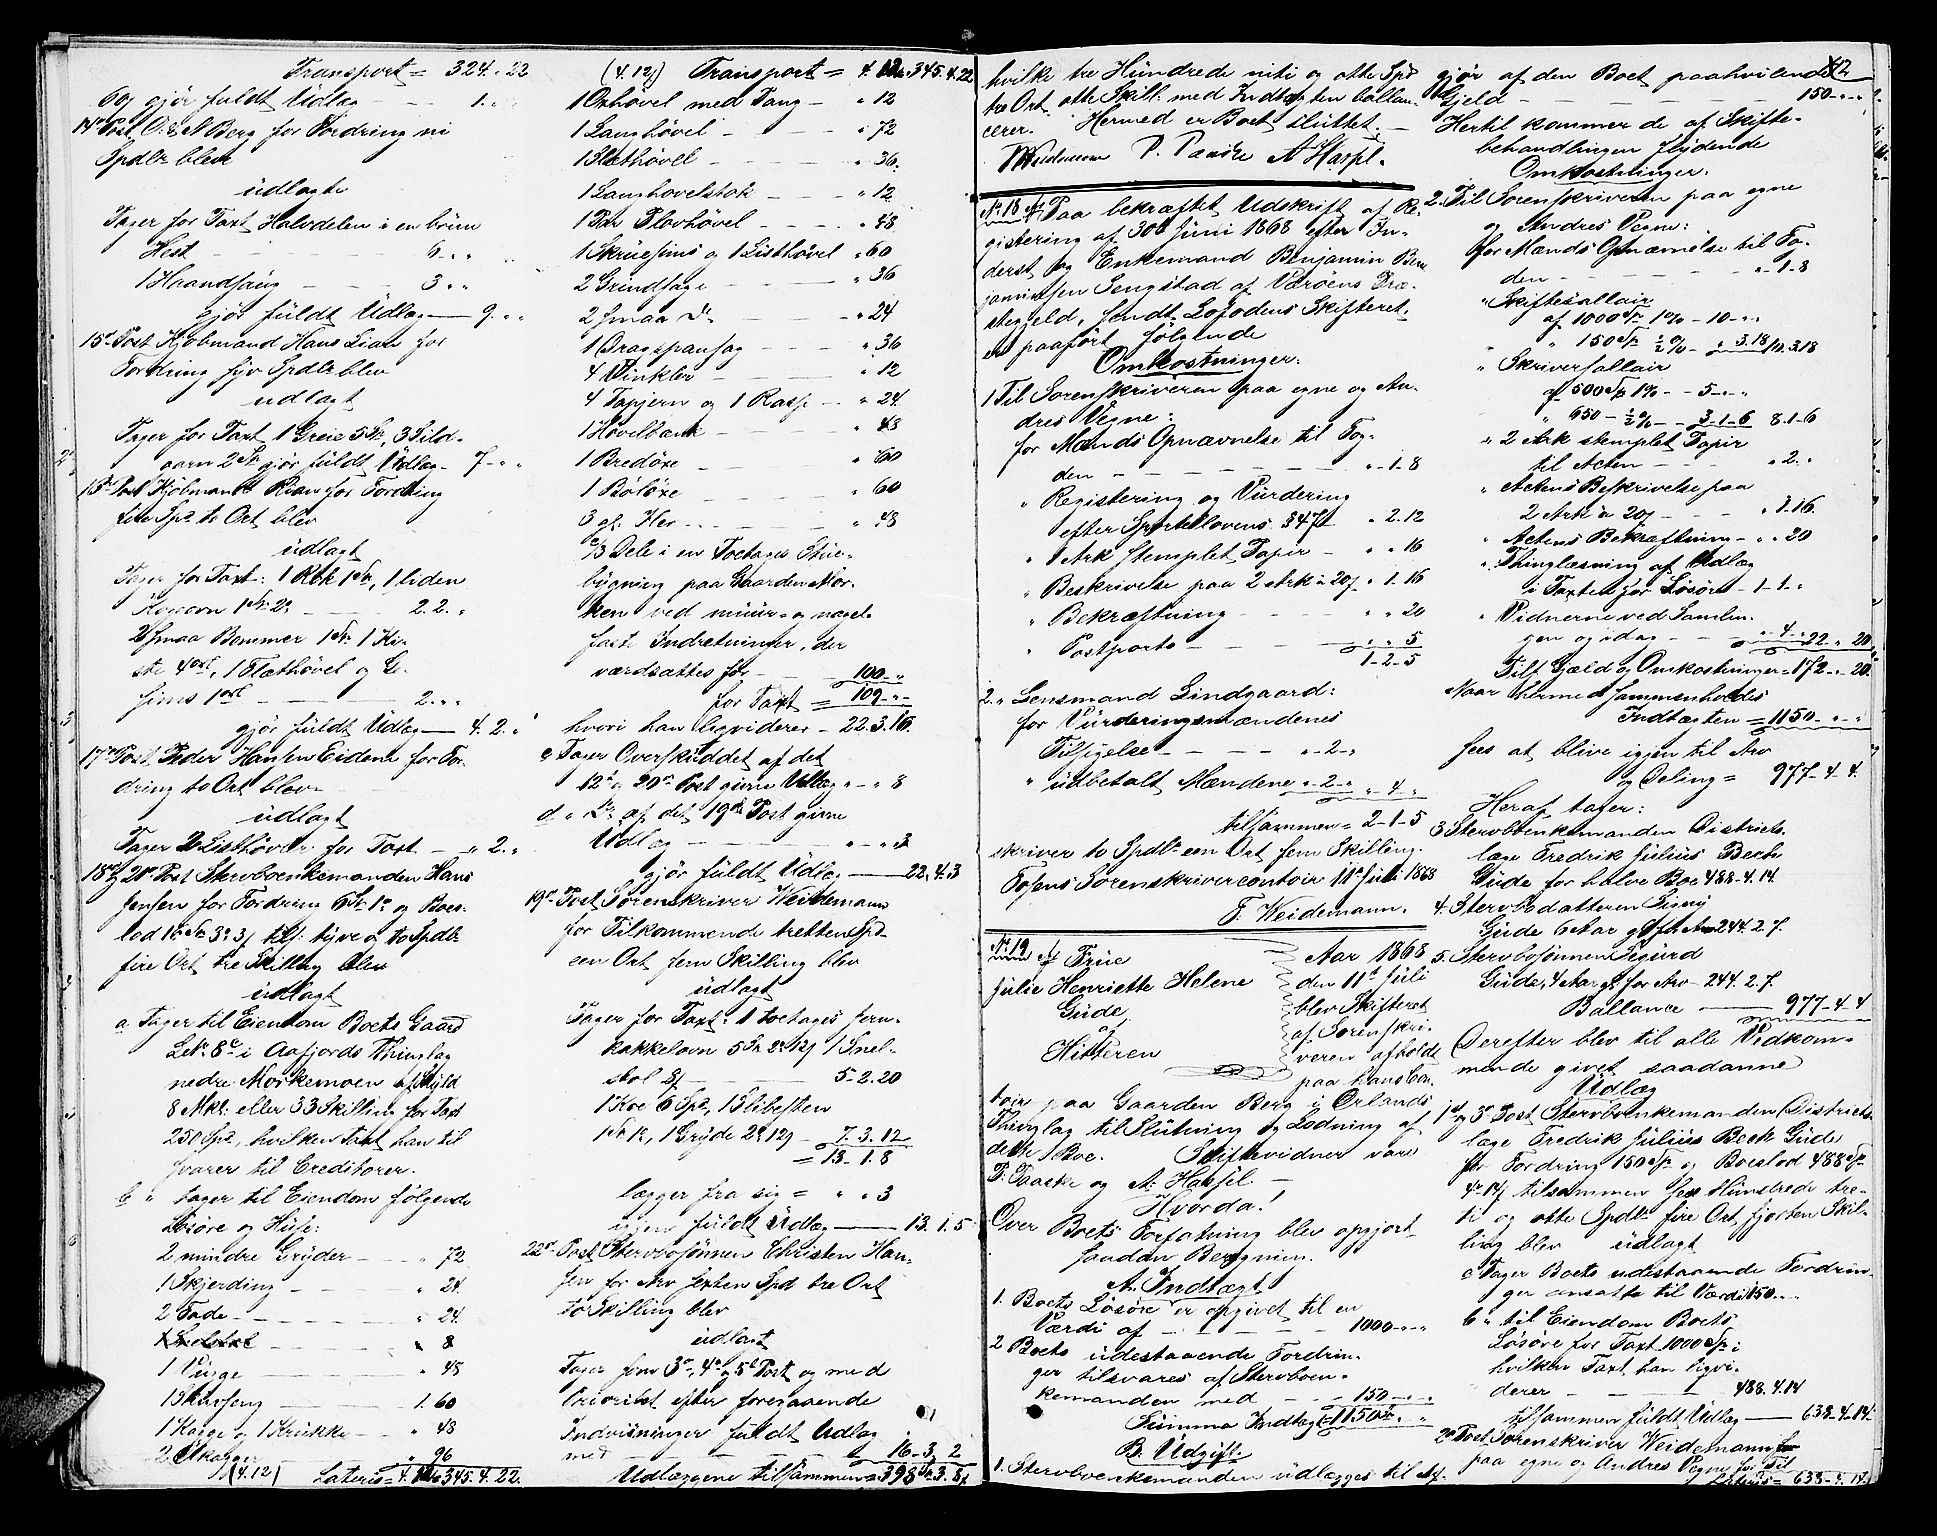 Transport = 324. " 22
60g gjør fuldt Udlæg - - - 1. "
14de Post O. & A Berg for Fordring ni
Spdlr blev
udlagte
Tager for Taxt Halvdelen i en brun
Hest - - - 6 " "
1 Haandsaug - - - 3 " "
gjør fuldt Udlæg — 9. " "
15de Post Kjøbmand Hans Lian for
Fordring syv Spdlr blev
udlagt
Tager for Taxt 1 Greie 5 Sp, 3 Sild-
garn 2 Sp gjør fuldt Udlæg - 7 - " "
16de Post Kjøbmand Rian for Fordring
fire Spd to Ort blev
udlagt
Tager for Taxt: 1 1 Sp, 1 liden
Kogeovn 1 Sp 2 - - - 2. 2. "
2 smaa Bommer 1 Sp 1 Ki-
ste 4 ort, 1 Flathøvel og Ge-
sims 1 ort - - - 2. " "
gjør fuldt Udlæg — 4. 2. "
17de Post Peder Hansen Eidem for For-
dring to Ort blev
udlagt
Tager 2 Listhøvler for Taxt - " 2. "
18de og 20de Post Stervboenkemanden Hans
Jensen for Fordring 6 Sp 1 og Boes-
lod 16 Sp 3 3 tils. tyve og to Spdlr
fire Ort tre Skilling blev
udlagt
a Tager til Eiendom Boets Gaard
LNo 8 i Aafjords Thinglag
nedre Morkemoen af Skyld
8 Mkl. eller 33 Skilling for Taxt
250 Spd, hvilken Taxt han til-
svarer til Creditorer.
b " tager til Eiendom følgende
Løsøre og Huse:
2 mindre Gryder - - - " 72
1 Skjerding - - - " 24
2 Fade - - - " 24
" 8
1 Vugge - - - " 48
1 Skuvseng - - - 1. 60
1 Kagge og 1 Krukke - - " 48
2 Kagger - - - " 96
(4.12) Lateris = 345. 4. 22.
(4.12) Transport = 345. 4. 22
1 Oxhøvel med Tang - " 12
1 Langhøvel - - - " 72
1 Slethøvel - - - " 36
1 Langhovelstok - - - " 12
1 Par Plovhøvel - - - " 48
1 Skruesims og 1 Listhøvel " 60
2 Grundsage - - - " 36
2 smaa Do - - - " 24
1 Dragspansag - - - " 36
4 Vinkler - - - " 12
4 Tapjern og 1 Rasp - - " 24
1 Høvelbænk - - - " 48
1 Bredøxe - - - " 60
1 Bøløxe - - - " 60
3 gl. - - - " 48
2/3 Dele i en Toetages Stue-
bygning paa Gaarden Mor-
ken ved muur- og nagel-
faste Indretninger, der
værdsattes for - - 100 - "
for Taxt = 109 - " -
hvori han liqviderer - 22. 3. 16.
c Tager Overskuddet af det
12te og 20de Post givne Udlæg " - " 8
d " Do af det 19de Post givne
Udlæg - - - " - " 3
gjør fuldt Udlæg — 22. 4. 3
19de Post Sorenskriver Weidemann
for Tilkommende tretten Spd
een Ort fem Skilling blev
udlagt
Tager for Taxt: 1 toetages Jern-
kakkelovn 5 Sp 2 12, 1 Snel-
stol - - - 5 - 2. 20
1 Koe 6 Spd, 1 Slibesten
1 Sp 1, 1 Gryde 2 12 - 7. 3. 12
= 13 - 1. 8
lægger fra sig = " " 3
igjen fuldt Udlæg — 13. 1. 5
22de Post Stervbosønnen Christen Han-
sen for Arv sexten Spd tre Ort
to Skilling blev
udlagt
Tager fem 3de, 4de og 5te Post og med
Prioritet efter foregaaende
Indvisninger fuldt Udlæg
med - - - 16 - 3. 2
Udlæggene tilsammen = 398 Sp. 3. 8.
hvilke tre Hundrede niti og otte Spd
tre Ort otte Skill: med Indtægten ballan-
cerer. Hermed er Boet sluttet. -
Weidemann P. Paaske A Harpl.
No 18. Paa bekræftet Udskrift af Re-
gistering af 30te Juni 1868 efter In-
derst og Enkemand Benjamin Ben-
jaminsen Sengstad af Værøens Præ-
stegjeld, sendt Lofodens Skifteret,
er paaført følgende
Omkostninger:
1 Til Sorenskriveren paa egne og An-
dres Vegne:
for Mænds Opnævnelse til Fog-
den - - - " - 1 - 8
" Registering og Vurdering
efter Sportellovens §47 " 2. 12
" 1 Ark stemplet Papir - " " 16
" Beskrivelse paa 2 Ark a 20 " 1. 16
" Bekræftning - - " " 20
" Postporto - - " " 5
1 - 2 - 5
2. " Lensmand Lindgaard:
for Vurderingsmændenes
Tilsigelse - - - " - 2 - "
" udbetalt Mændene " - 2 - " " 4 "
tilsammen = 2 - 1 - 5
skriver to Spdlr een Ort fem Skilling.
Fosens Sorenskrivercontoir 11te Juli 1868
F. Weidemann.
No 19 Frue
Julie Henriette Helene
Gude
af
Hitteren
Aar 1868
den 11te Juli
blev Skifteret
af Sorenskri-
veren afholdt
paa hans Con-
toir paa Gaarden Berg i Ørlands
Thinglag til Slutning og Lodning af
dette Boe. Skiftevidner vare
P. Paaske og A. Harpl. -
Hvorda!
Over Boets Forfatning blev opgjort
saadan Beregning.
A. Indtægt
1. Boets Løsøre er opgivet til en
Værdi af - - - 1000 - " "
2 Boets udestaaende Fordrin-
ger tilsvares af Stervboen-
kemanden med - - 150 - "
Summa Indtægt = 1150 " "
B. Udgift.
1. Stervboenkemanden udlægges til Af-
42
gjør af den Boet paahvilende
Gjeld - - - 150 - " "
Hertil kommer de af Skifte-
behandlingen flydende
Omkostninger:
2. Til Sorenskriveren paa egne
og Andres Vegne:
for Mænds Opnævnelse til Fo-
den - - - " - 1 - 8
" Skiftesallair
af 1000 Sp 1% - 10 - " "
" 150 Sp ½% - " 3. 18 10. 3. 18
" Skriversallair
af 500 Sp 1% - - 5 - " "
" 650 - ½% - - 3 - 1 - 6 8 - 1 - 6
" 2 Ark stemplet Papir
til Acten - - - " 2. "
" Actens Beskrivelse paa
2 Ark a 20 - - - " 1. 16.
" Actens Bekræftning - " " 20
" Thinglæsning af Udlæg
i Taxten for Løsøre - 1 - 1. "
" Vidnerne ved Samlin-
gen og idag - - " 4 - " 22 - " 20
Tils. Gjæld og Omkostninger = 172 - " 20
Naar hermed sammenholdes
Indtægten = 1150 - " "
sees at blive igjen til Arv
og Deling = 977 - 4 - 4.
Heraf tager:
3 Stervboenkemanden Districts-
læge Fredrik Julius Bech
Gude for halve Boe 488 - 4. 14.
4. Stervbodatteren Signy
Gude 6 Aar gl. for Arv 244. 2. 7.
5. Stervbosønnen Sigurd
Gude, 4 Aar gl. for Arv - 244. 2. 7.
Ballance — 977 - 4. 4
Derefter blev til alle Vedkom-
mende givet saadanne
Udlæg
1ste og 3de Post Stervboenkemanden Districts-
læge Fredrik Julius Bech Gude
for Fordring 150 Sp og Boeslod 488 Sp
4 14 tilsammen sex Hundrede tre-
ti og otte Spdlr fire Ort fjorten Skil-
ling blev udlagt
a Tager Boets udestaaende Fordrin-
ger ansatte til Værdi 150. " "
b " til Eiendom Boets
Løsøre for Taxt 1000 Sp i
hvilken Taxt han liqvi-
derer - - - 488. 4. 14
tilsammen fuldt Udlæg — 638 - 4 - 14.
2de Post Sorenskriver Weidemann for
paa egne og Andres Vegne for Til-
Lateris = 638 - 4. 14.